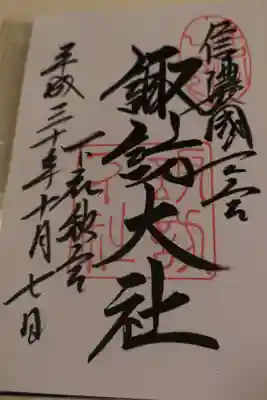 信濃國一之宮
諏訪大社
下社秋宮
平成三十年十月七日